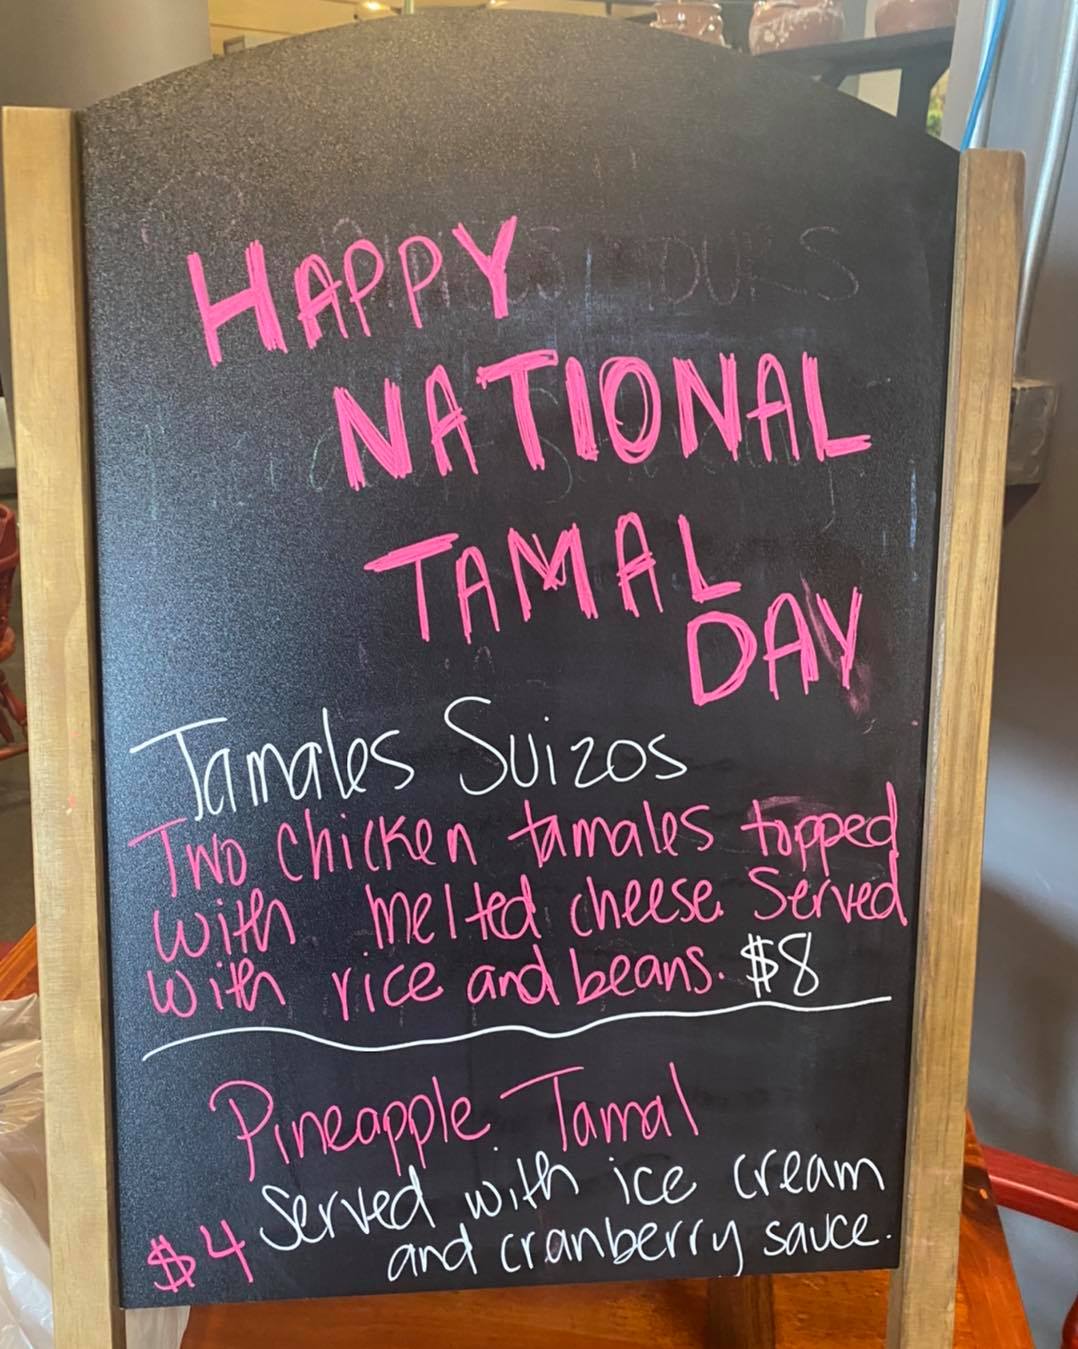 HAPPY
NATIONAL
TAMAL
DAY
Tamales Suizos
Two chicken tamales topped
with melted cheese. Served
with rice and beans. $8
Pineapple Tamal
Served with ice cream
$4 and cranberry sauce.